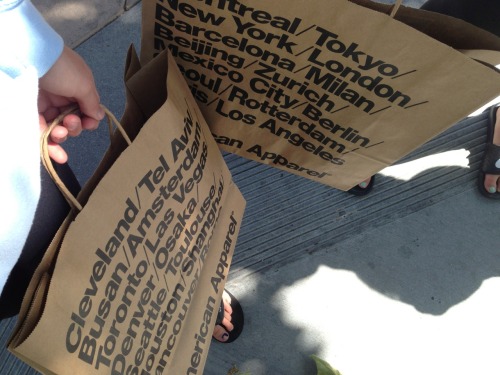 Montreal/Tokyo/
New York/London/
Barcelona/Milan/
Beijing/Zurich/
Mexico City/Berlin/
Seoul/Rotterdam/
/Los Angeles
American Apparel
Cleveland/Tel Aviv/
Busan/Amsterdam/
Toronto/Las Vegas/
Denver/Osaka/
Seattle/Toulouse/
Houston/Shanghai/
Vancouver/
American Apparel